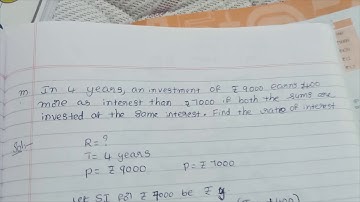 m In 4 years, an investment of ₹ 9000 earns ₹400
more as interest than ₹7000 if both the sums are
invested at the same interest. Find the ratio of interest
Sol:- R = ?
T= 4 years
P= ₹ 9000 P= ₹ 7000
Let SI for ₹ 7000 be ₹ y